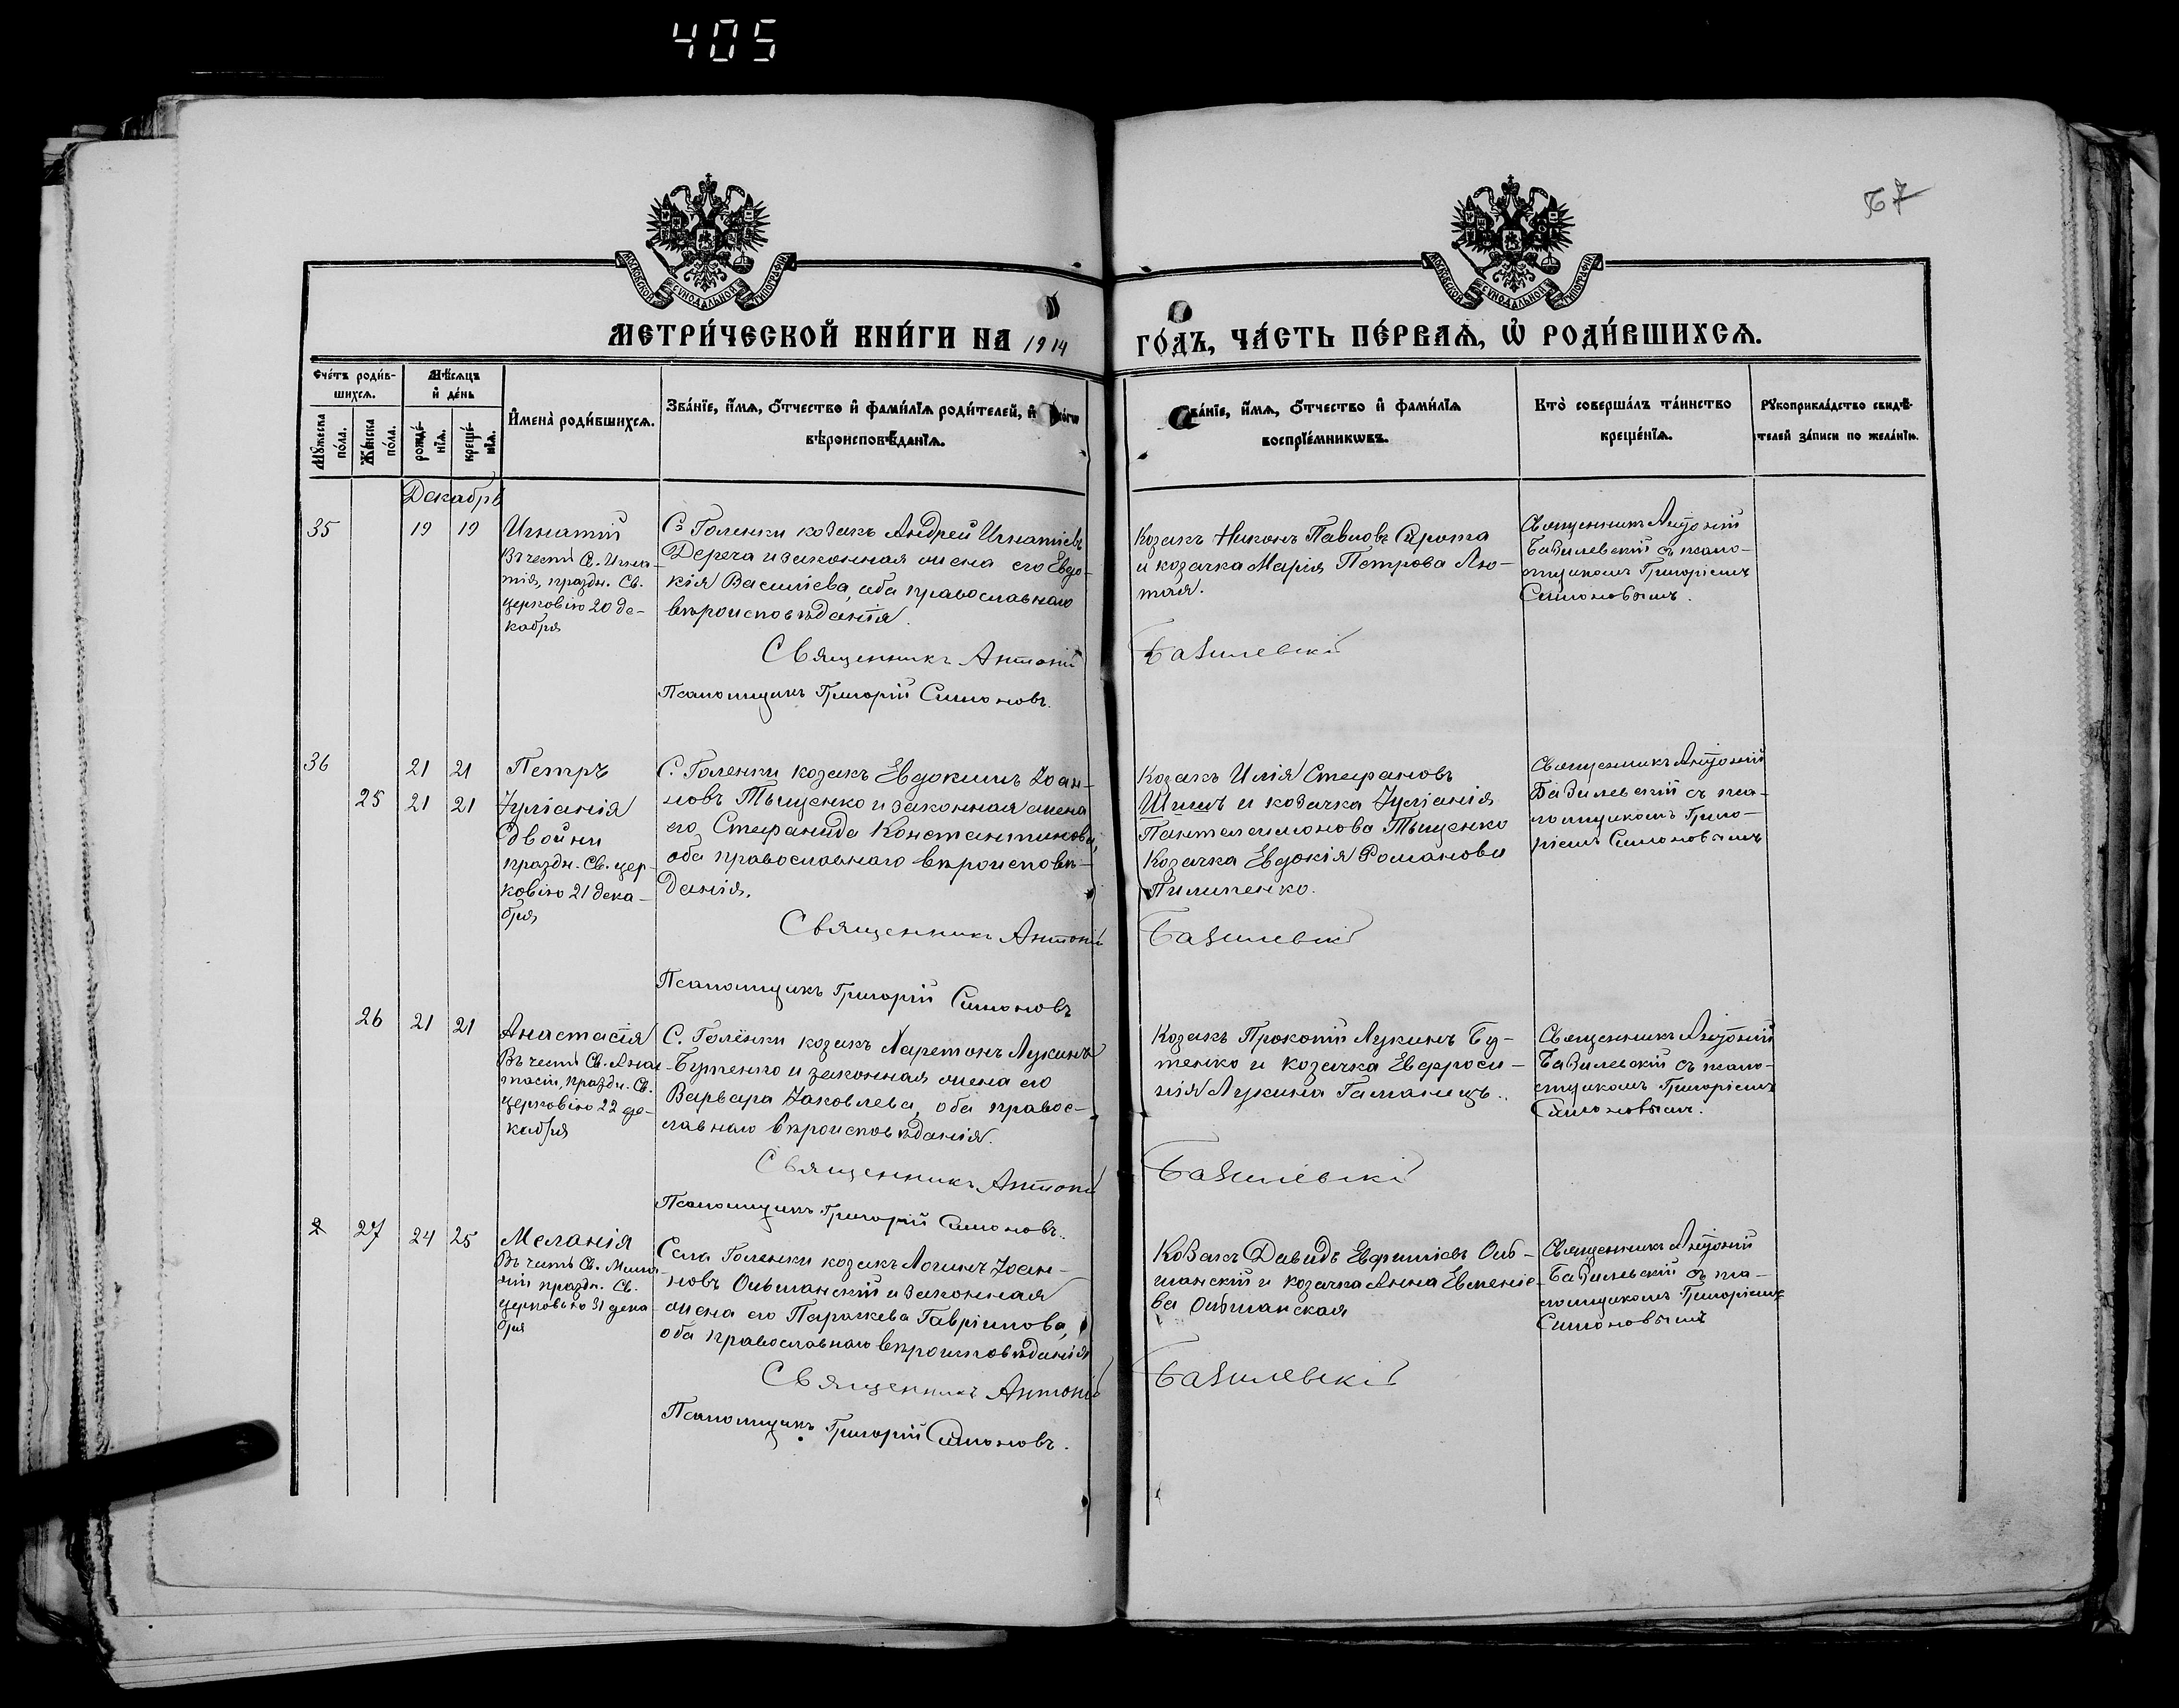 405
67
МОСКОВСКОЙ СѴНОДАЛЬНОЙ ТИПОГРАФІИ
МОСКОВСКОЙ СѴНОДАЛЬНОЙ ТИПОГРАФІИ
МЕТРИ́ЧЕСКОЙ КНИ́ГИ НА 1914 ГО́ДЪ, ЧА́СТЬ ПЕ́РВАѦ, Ѡ҆ РОДИ́ВШИХСѦ.
Сче́тъ роди́в-
шихсѧ.
Мꙋ́жеска по́ла.
Же́нска по́ла.
Мѣ́сѧцъ
и҆ де́нь
рожде́-
нїѧ.
креще́-
нїѧ.
И҆мена̀ роди́вшихсѧ.
Зва́нїе, и҆́мѧ, ѻ҆́тчество и҆ фамилїѧ роди́телей, и҆
вѣроисповѣ́данїѧ.
Зва́нїе, и҆́мѧ, ѻ҆́тчество и҆ фами́лїѧ
воспрїе́мникѡвъ.
Кто̀ соверша́лъ та́инство
креще́нїѧ.
Рꙋкоприкла́дство свидѣ́-
телей за́писи по жела́нїю.
Декабрь
35
19 19
Игнатій
Въ честь Св. Игна-
тія, праздн. Св.
церковію 20 де-
кабря
С. Голенки козакъ Андрей Игнатіевъ
Дереча и законная жена его Евдо-
кія Василіева, оба православнаго
вѣроисповѣданія.
Священникъ Антоній
Псаломщикъ Григорій Симоновъ.
Козакъ Никонъ Павловъ Сирота
и козачка Марія Петрова Лю-
тая.
Базилевскій
Священникъ Антоній
Базилевскій съ псало-
мщикомъ Григоріемъ
Симоновымъ.
36
21 21
Петръ
25 21 21
Іуліанія
Двойни
праздн. Св. цер-
ковію 21 дека-
бря
С. Голенки козакъ Евдокимъ Іоан-
новъ Тыщенко и законная жена
его Стефанида Константинова,
оба православнаго вѣроисповѣ-
данія.
Священникъ Антоній
Псаломщикъ Григорій Симоновъ
Козакъ Илія Стефановъ
Шишъ и козачка Іуліанія
Пантелеимонова Тыщенко
Козачка Евдокія Романова
Пилипенко.
Базилевскій
Священникъ Антоній
Базилевскій съ пса-
ломщикомъ Григо-
ріемъ Симоновымъ
26 21 21
Анастасія
Въ честь Св. Анас-
тасіи, праздн. Св.
церковію 22 де-
кабря
С. Голенки козакъ Харитонъ Лукинъ
Бутенко и законная жена его
Варвара Іаковлева, оба правос-
лавнаго вѣроисповѣданія.
Священникъ Антоній
Псаломщикъ Григорій Симоновъ.
Козакъ Прокопій Лукинъ Бу-
тенко и козачка Евфроси-
нія Лукина Гаманецъ.
Базилевскій
Священникъ Антоній
Базилевскій съ псало-
мщикомъ Григоріемъ
Симоновымъ.
27 24 25
Меланія
Въ честь Св. Мела-
ніи праздн. Св.
церковію 31 дека
бря
Села Голенки козакъ Логинъ Іоан-
новъ Ошманскій и законная
жена его Параскева Гавріилова,
оба православнаго вѣроисповѣданія
Священникъ Антоній
Псаломщикъ Григорій Симоновъ.
Козакъ Давидъ Евфиміевъ Ош-
манскій и козачка Анна Евменіе-
ва Ошманская
Базилевскій
Священникъ Антоній
Базилевскій съ пса-
ломщикомъ Григоріемъ
Симоновымъ